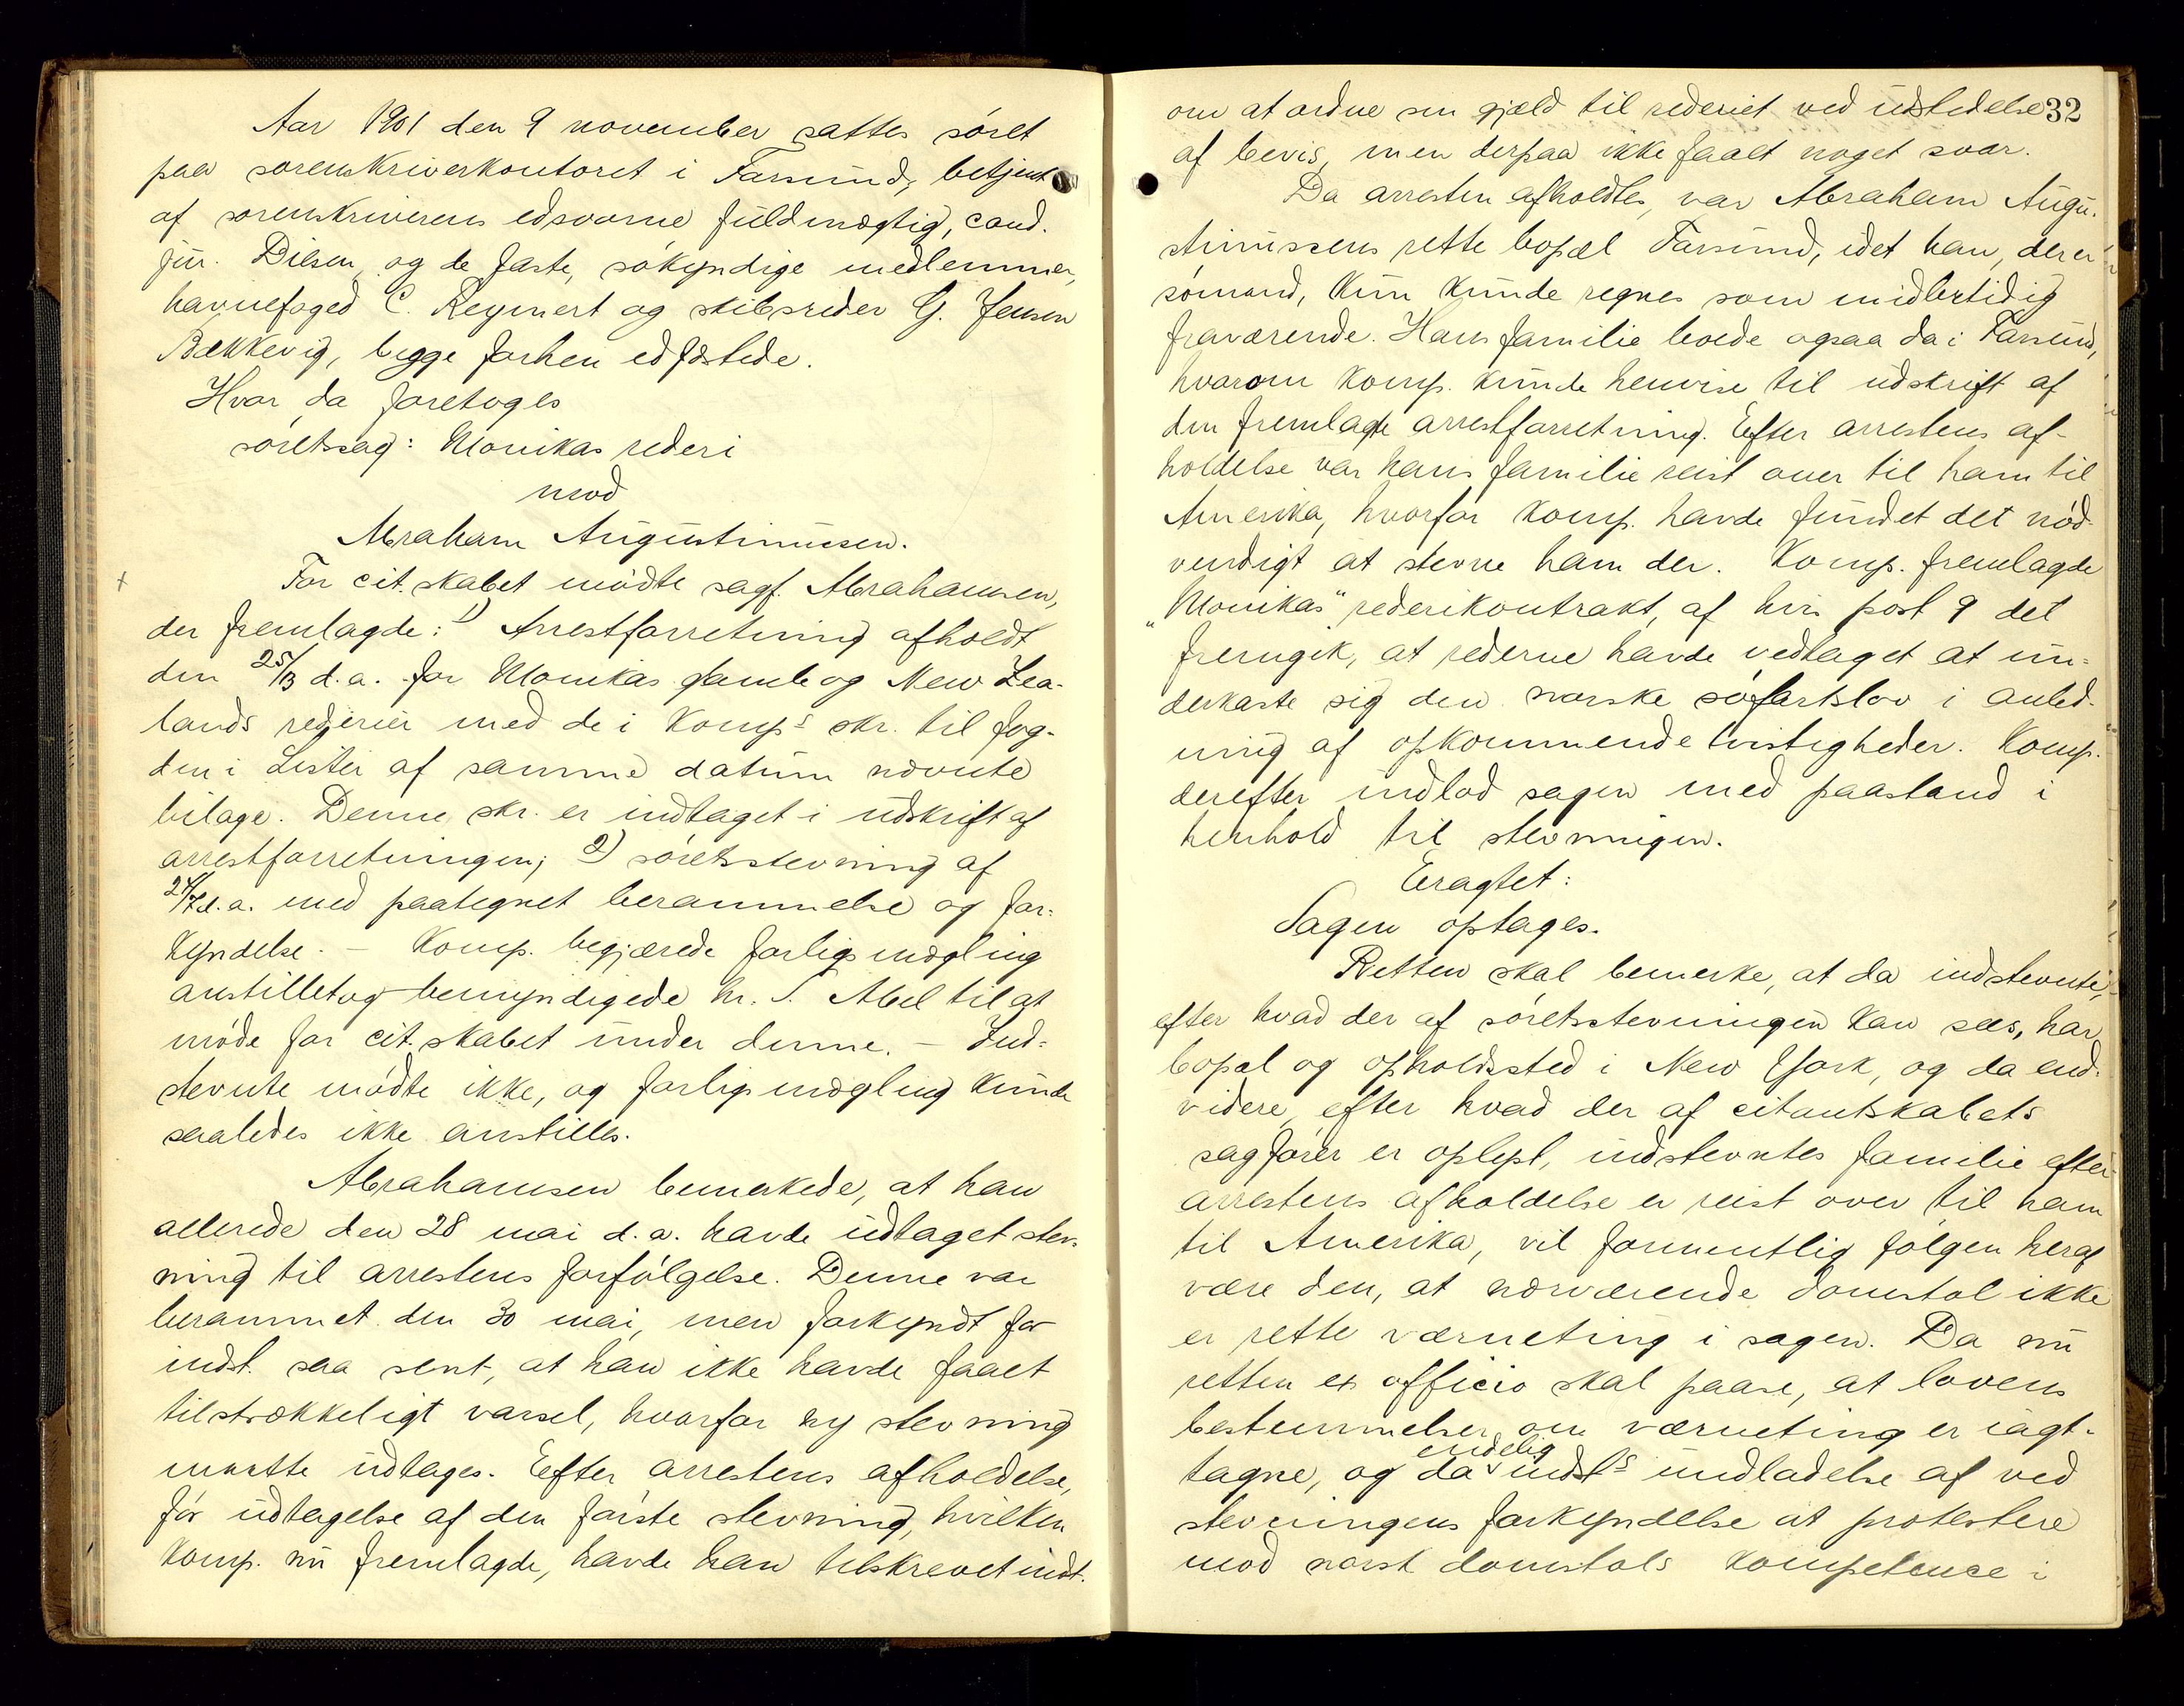 Aar 1901 den 9 november sattes søret
paa sorenskriverkontoret i Farsund, betjent
af sorenskriverens edsvorne fuldmægtig, cand.
jur. Dilsen og de faste, søkyndige medlemmer,
havnefoged C. Reymert og skibsreder G. Jensen
Bækkevig, begge forhen edfæstede.
Hvor da foretoges
søretssag: Monikas rederi
mod
Abraham Augustinussen.
For cit.skabet mødte sagf. Abrahamsen,
der fremlagde: 1) Arrestforretning afholdt
den 25/3 d.a. for Monikas gamle og New Zea-
lands rederier med de i Komps skr. til fog-
den i Lister af samme datum nævnte
bilage. Denne skr. er indtaget i udskrift af
arrestforretningen; 2) søretsstevning af
24/7 d.a. med paategnet berammelse og for-
kyndelse. – Komp. begjærede forligsmægling
anstillet og bemyndigede hr. S. Abel til at
møde for cit.skabet under denne. – Ind-
stevnte mødte ikke, og forligsmægling kunde
saaledes ikke anstilles.
Abrahamsen bemerkede, at han
allerede den 28 mai d.a. havde udtaget stev-
ning til arrestens forfølgelse. Denne var
berammet den 30 mai, men forkyndt for
indst. saa sent, at han ikke havde faaet
tilstrækkeligt varsel, hvorfor ny stevning
maatte udtages. Efter arrestens afholdelse,
før udtagelse af den første stevning, hvilken
Komp. nu fremlagde, havde han tilskrevet indst.
32
om at ordne sin gjæld til rederiet ved udstedelse
af bevis, men derpaa ikke faaet noget svar.
Da arresten afholdtes, var Abraham Augu-
stinussens rette bopæl Farsund, idet han, der er
sømand, kun kunde regnes som midlertidig
fraværende. Hans familie boede ogsaa da i Farsund,
hvorom Komp. kunde henvise til udskrift af
den fremlagte arrestforretning. Efter arrestens af-
holdelse var hans familie reist over til ham til
Amerika, hvorfor Komp. havde fundet det nød-
vendigt at stevne ham der. Komp. fremlagde
"Monikas" rederikontrakt, af hvis post 9 det
fremgik, at rederne havde vedtaget at un-
derkaste sig den norske søfartslov i anled-
ning af opkommende tvistigheder. Komp.
derefter indlod sagen med paastand i
henhold til stevningen.
Eragtet:
Sagen optages.
Retten skal bemerke, at da indstevnte,
efter hvad der af søretsstevningen kan sees, har
bopæl og opholdssted i New York, og da end-
videre, efter hvad der af citantskabets
sagfører er oplyst, indstevntes familie efter
arrestens afholdelse er reist over til ham
til Amerika, vil formentlig følgen heraf
være den, at nærværende domstol ikke
er rette værneting i sagen. Da nu
retten ex officio skal paase, at lovens
bestemmelser om værneting er iagt-
tagne, og da endelig indsts undladelse af ved
stevningens forkyndelse at protestere
mod norsk domstols kompetence i